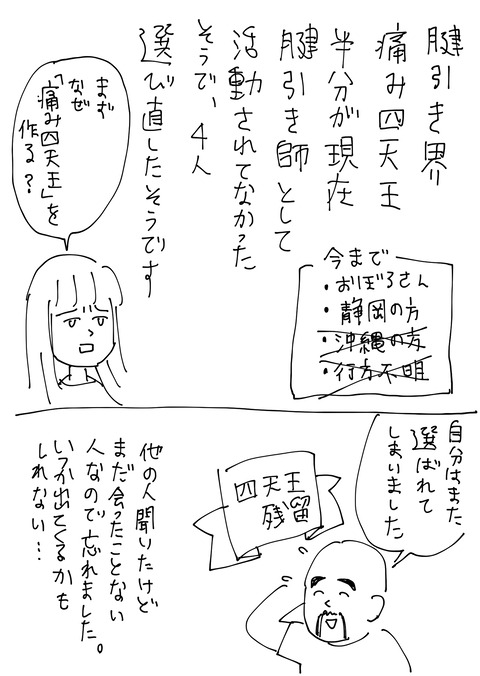 腱引き界
痛み四天王
半分が現在
腱引き師として
活動されてなかった
そうで、4人
選び直したそうです
まず
なぜ
「痛み四天王」を
作る？
今まで
・おぼろさん
・静岡の方
・沖縄の方
・行方不明
自分はまた
選ばれて
しまいました
四天王
残留
他の人聞いたけど
まだ会ったことない
人なので忘れました。
いつか出てくるかも
しれない…